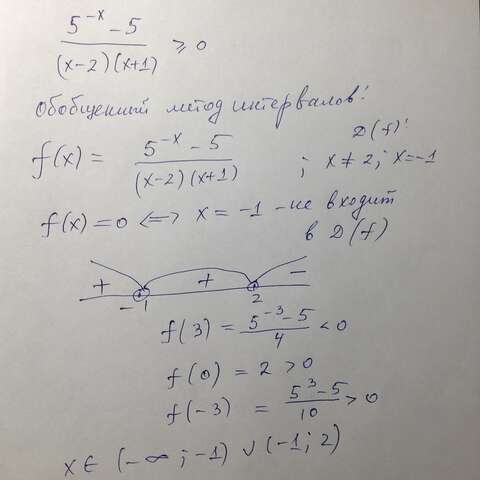 5^{-x} - 5 / (x-2)(x+1) ≥ 0
Обобщенный метод интервалов:
f(x) = 5^{-x} - 5 / (x-2)(x+1) ; D(f): x ≠ 2; x=-1
f(x)=0 <=> x = -1 - не входит
в D(f)
+ + -
-1 2
f(3) = 5^{-3} - 5 / 4 < 0
f(0) = 2 > 0
f(-3) = 5^3 - 5 / 10 > 0
x ∈ (-∞; -1) ∪ (-1; 2)